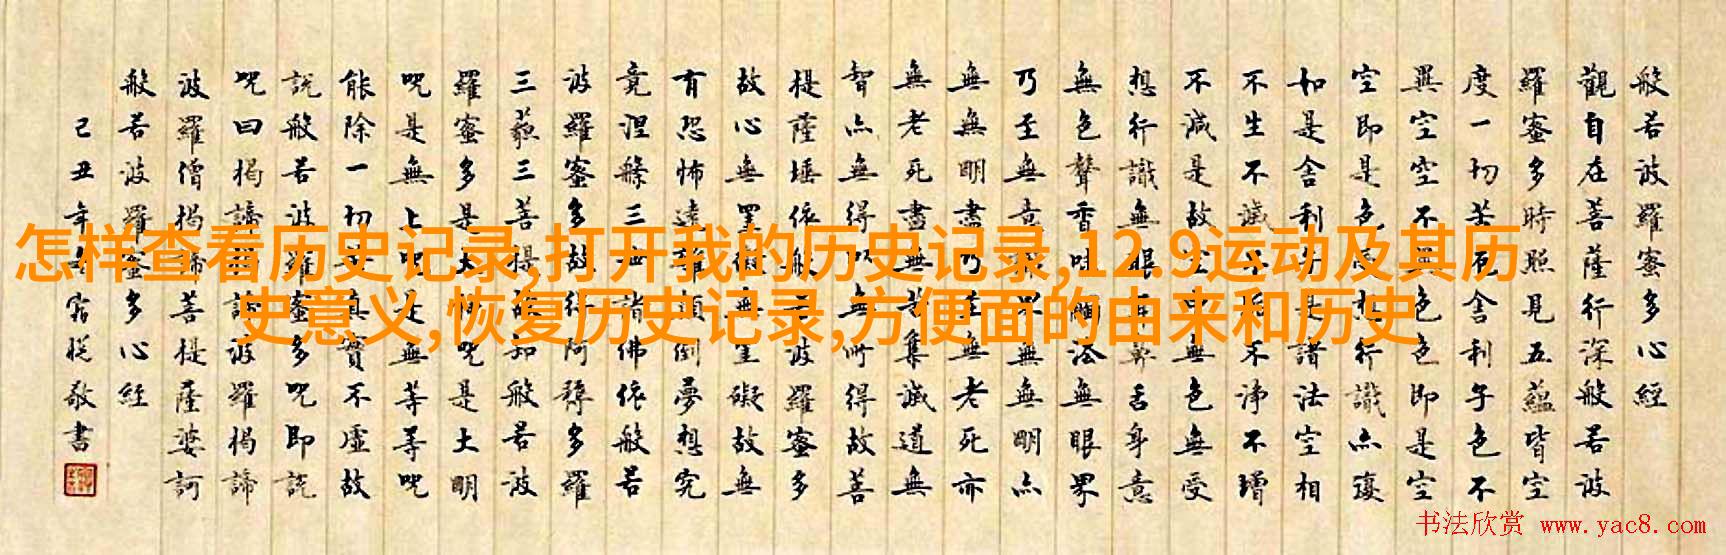 般若波羅蜜多心經
觀自在菩薩行深般若波
羅蜜多時照見五蘊皆空
度一切苦厄舍利子色不
異空空不異色色即是空
空即是色受想行識亦復
如是舍利子是諸法空相
不生不滅不垢不淨不增
不減是故空中無色無受
想行識無眼耳鼻舌身意
無色聲香味觸法無眼界
乃至無意識界無無明亦
無無明盡乃至無老死亦
無老死盡無苦集滅道無
智亦無得以無所得故菩
提薩埵依般若波羅蜜多
故心無罣礙無罣礙故無
有恐怖遠離顛倒夢想究
竟涅槃三世諸佛依般若
波羅蜜多故得阿耨多羅
三藐三菩提故知般若波
羅蜜多是大神咒是大明
咒是無上咒是無等等咒
能除一切苦真實不虛故
說般若波羅蜜多咒即說
咒曰揭諦揭諦波羅揭諦
波羅僧揭諦菩提薩婆訶
般若波羅蜜多心經
己丑年敬書
怎样查看历史记录,打开我的历史记录,12.9运动及其历
史意义,恢复历史记录,方便面的由来和历史
书法欣赏 www.yac8.com